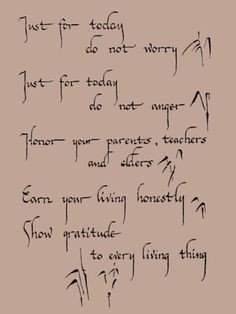 Just for today
do not worry
Just for today
do not anger
Honor your parents, teachers
and elders,
Earn your living honestly
Show gratitude
to every living thing